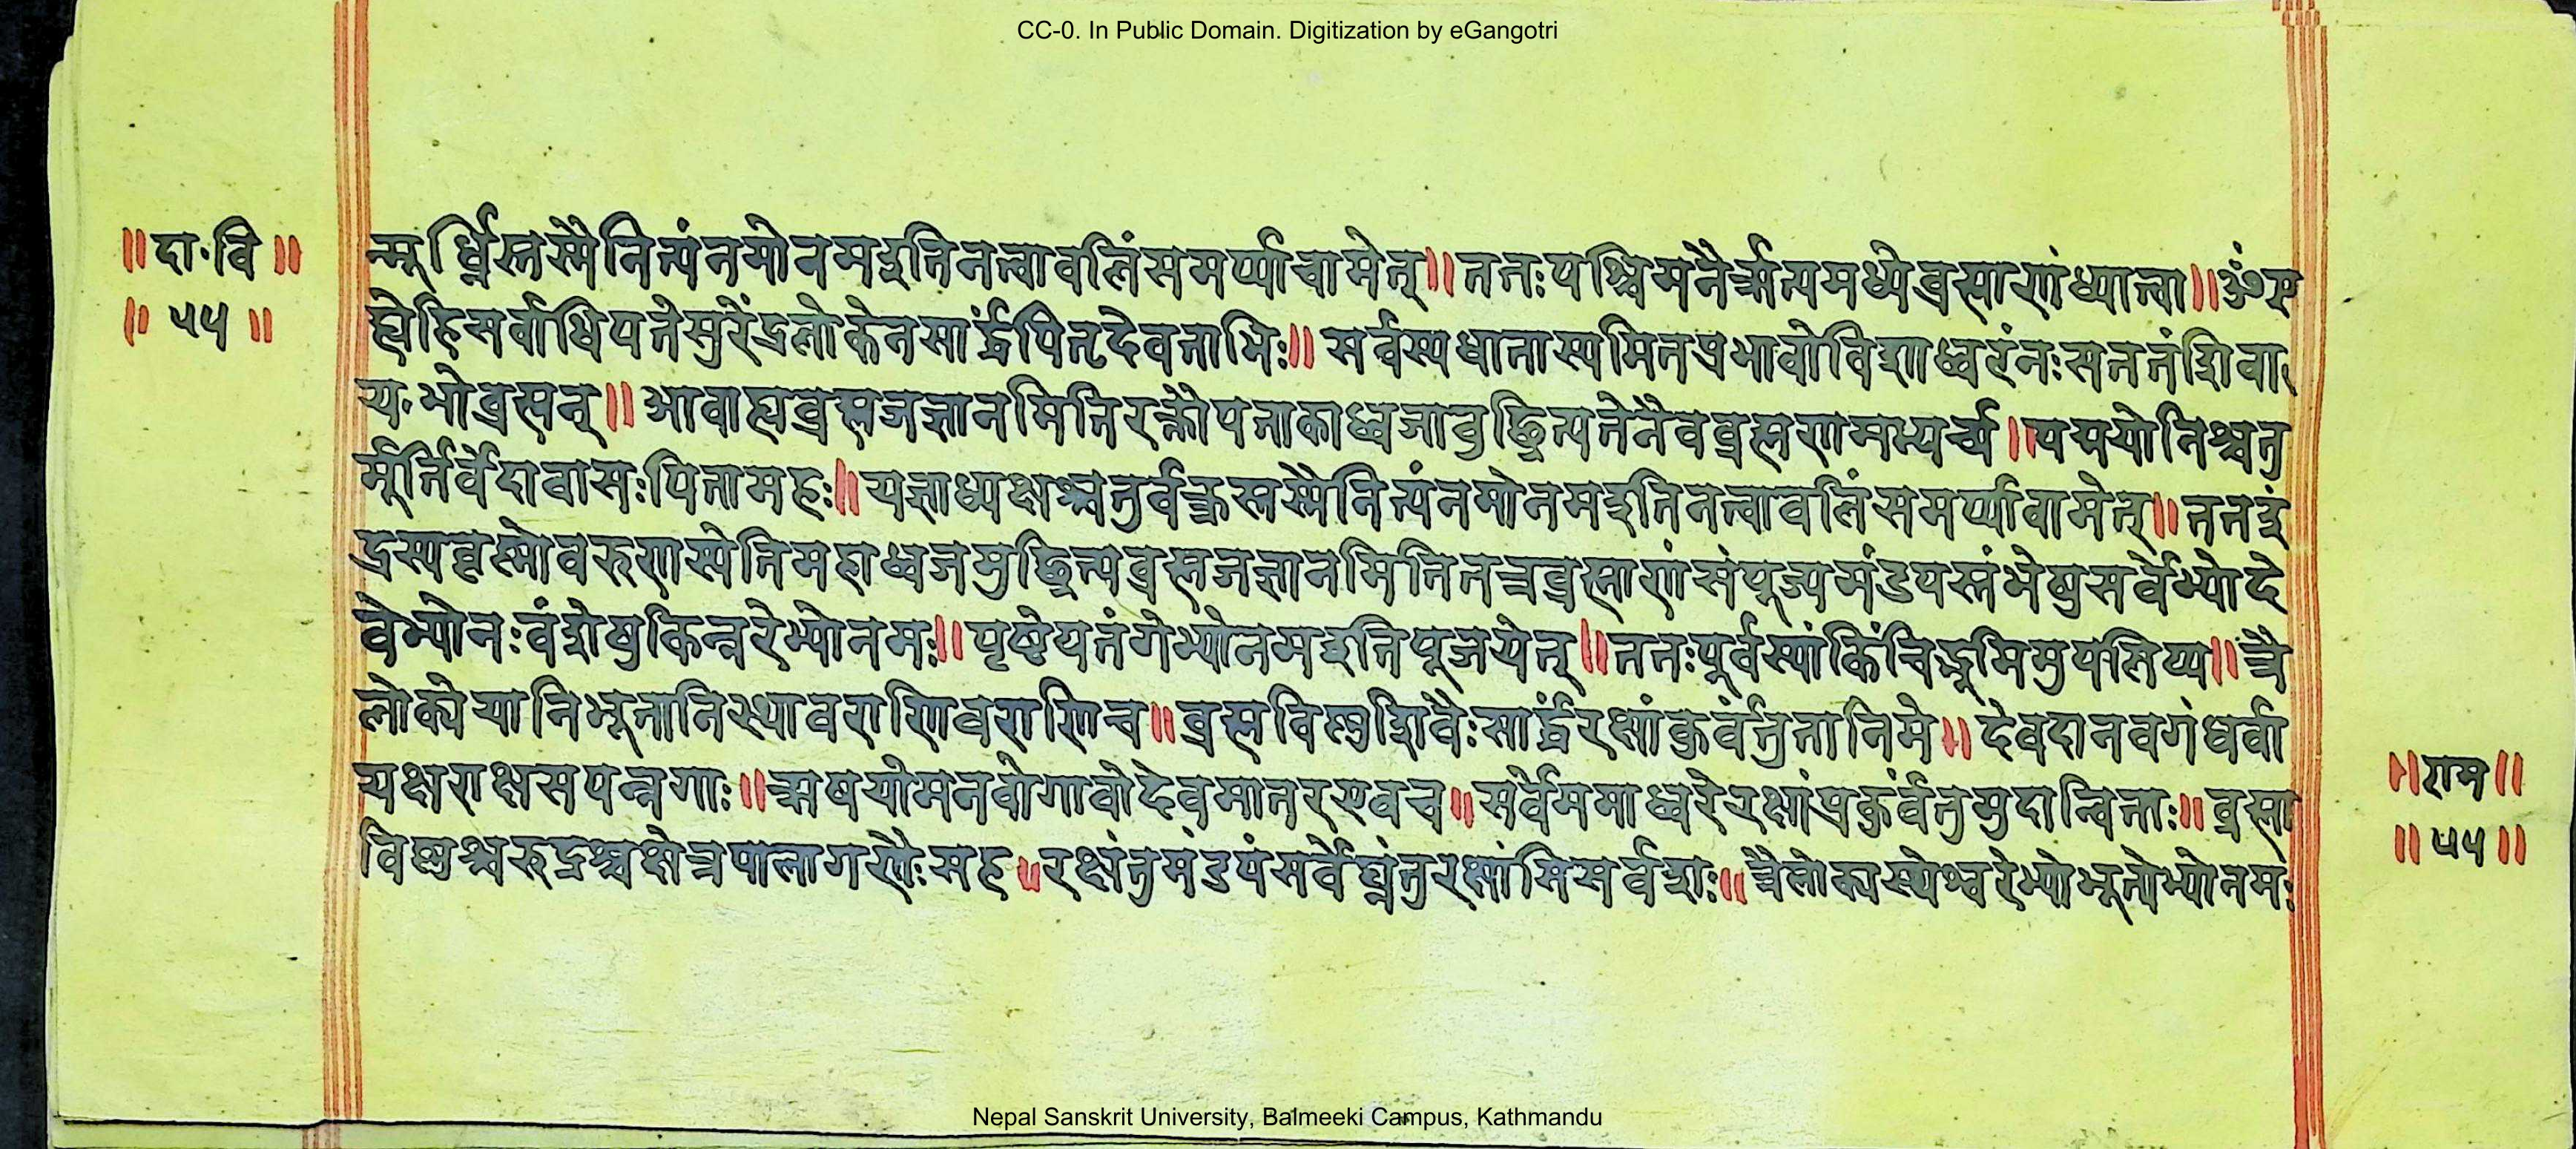 CC-0. In Public Domain. Digitization by eGangotri
॥दा॰वि॥
॥५५॥
न्मूर्ध्नितस्मैनित्यंनमोनमइतिनत्वावलिंसमर्प्याचामेत्॥ततःपश्चिमनैर्ऋत्यमध्येब्रह्माणंध्यात्वा॥ॐए
ह्येहिसर्वाधिपतेसुरेंद्रलोकेनसार्द्धंपितृदेवताभिः॥सर्वस्यधातास्यमितप्रभावोविशाध्वरंनःसततंशिवा
यभोब्रह्मन्॥आवाह्यब्रह्मजज्ञानमितिरक्तौपताकाध्वजावुच्छ्रित्यतेनैवब्रह्मणमभ्यर्च्य॥पद्मयोनिश्चतु
र्मूर्तिर्वेदावासःपितामहः॥यज्ञाध्यक्षश्चतुर्वक्त्रस्तस्मैनित्यंनमोनमइतिनत्वावलिंसमर्प्यावामेत्॥ततइं
द्रस्यवृष्णोवरुणस्येतिमहाध्वजमुच्छ्रित्यब्रह्मजज्ञानमितितत्रब्रह्माणंसंपूज्यमंडपस्तंभेषुसर्वेभ्योदे
वेभ्योनःवंशेषुकिन्नरेभ्योनमः॥पृष्ठेपतंगेभ्योनमइतिपूजयेत्॥ततःपूर्वस्यांकिंचिद्भूमिमुपलिप्य॥त्रै
लोक्येयानिभूतानिस्थावराणिचराणिच॥ब्रह्मविष्णुशिवैःसार्द्धंरक्षांकुर्वंतुतानिमे॥देवदानवगंधर्वा
यक्षराक्षसपन्नगाः॥ऋषयोमनवोगावोदेवमातरएवच॥सर्वेममाध्वरेरक्षांप्रकुर्वंतुमुदान्विताः॥ब्रह्मा
विष्णुश्चरुद्रश्चक्षेत्रपालागणैःसह॥रक्षंतुमंडपंसर्वेघ्नंतुरक्षांसिसर्वशः॥त्रैलोक्यस्थेभ्वरेभ्योभूतोभ्योनमः
॥राम॥
॥५५॥
Nepal Sanskrit University, Balmeeki Campus, Kathmandu